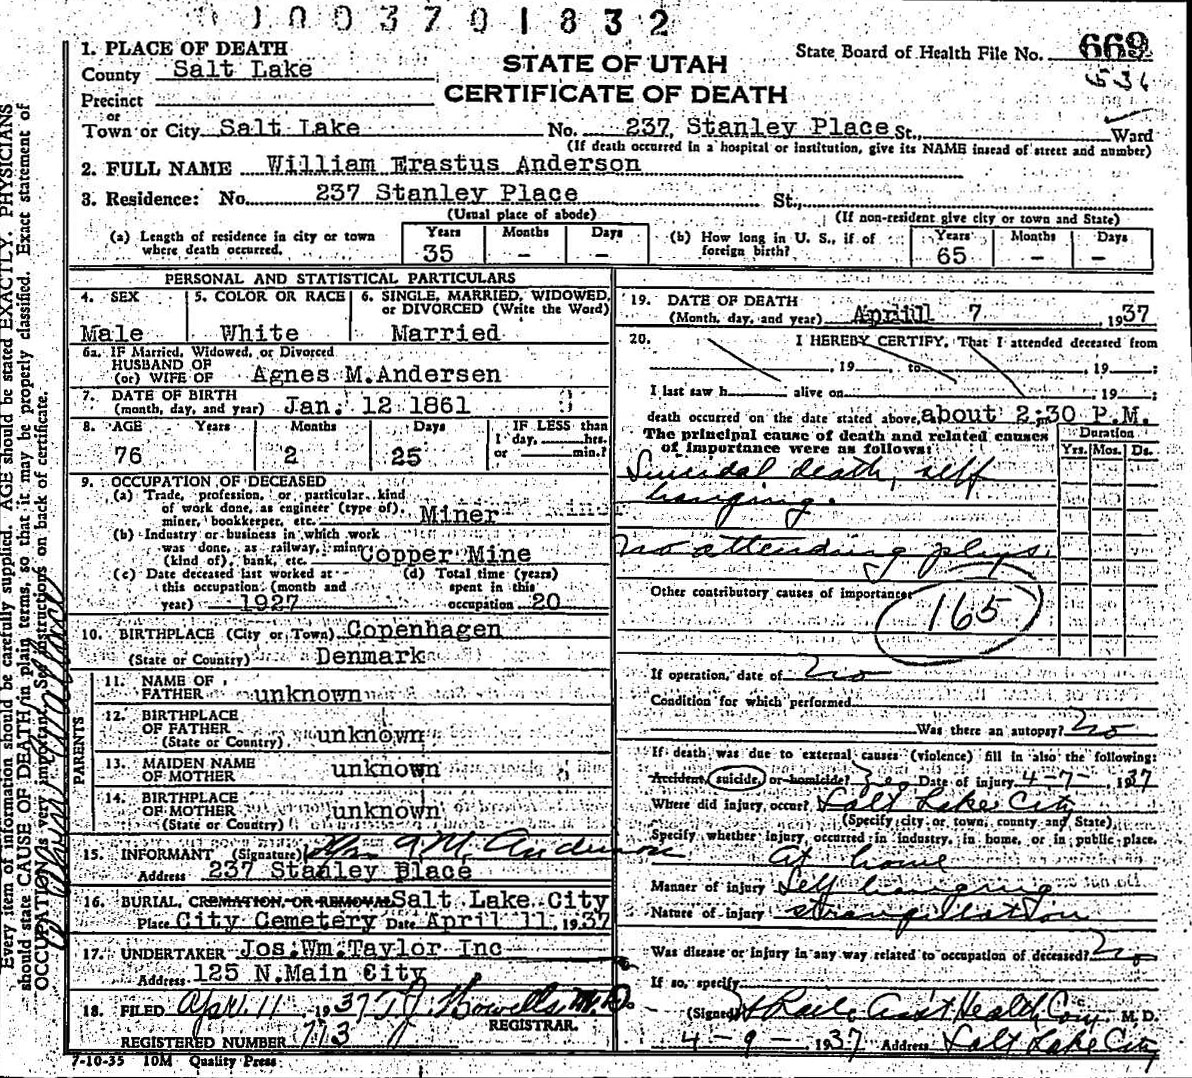 0003701832
1. PLACE OF DEATH
County Salt Lake
STATE OF UTAH
CERTIFICATE OF DEATH
State Board of Health File No. 669
536
Precinct
or
Town or City Salt Lake No. 237 Stanley Place St., Ward
(If death occurred in a hospital or institution, give its NAME insead of street and number)
2. FULL NAME William Erastus Anderson
3. Residence: No. 237 Stanley Place St.,
(Usual place of abode) (If non-resident give city or town and State)
(a) Length of residence in city or town where death occurred. Years 35 Months - Days -
(b) How long in U. S., if of foreign birth? Years 65 Months - Days -
PERSONAL AND STATISTICAL PARTICULARS
4. SEX Male
5. COLOR OR RACE White
6. SINGLE, MARRIED, WIDOWED, or DIVORCED (Write the Word) Married
6a. IF Married, Widowed, or Divorced
HUSBAND OF
(or) WIFE OF Agnes M.Andersen
7. DATE OF BIRTH
(month, day, and year) Jan. 12 1861
8. AGE Years 76 Months 2 Days 25 IF LESS than 1 day, hrs. or min.?
9. OCCUPATION OF DECEASED
(a) Trade, profession, or particular kind
of work done, as engineer (type of),
miner, bookkeeper, etc. Miner
(b) Industry or business in which work
was done, as railway, mine
(kind of), bank, etc. Copper Mine
(c) Date deceased last worked at
this occupation (month and
year) 1927
(d) Total time (years)
spent in this
occupation 20
10. BIRTHPLACE (City or Town) Copenhagen
(State or Country) Denmark
PARENTS
11. NAME OF
FATHER unknown
12. BIRTHPLACE
OF FATHER
(State or Country) unknown
13. MAIDEN NAME
OF MOTHER unknown
14. BIRTHPLACE
OF MOTHER
(State or Country) unknown
15. INFORMANT (Signature) A.M. Anderson
Address 237 Stanley Place
16. BURIAL, CREMATION, OR REMOVAL Salt Lake City
Place City Cemetery Date April 11, 1937
17. UNDERTAKER Jos.Wm.Taylor Inc
Address 125 N.Main City
18. FILED Apr. 11, 1937 REGISTRAR.
REGISTERED NUMBER 773
7-10-35 10M Quality Press
19. DATE OF DEATH
(Month, day, and year) Apriil 7 1937
20. I HEREBY CERTIFY, That I attended deceased from
, 19 , to , 19 ;
I last saw h alive on , 19 ;
death occurred on the date stated above, about 2:30 P.M.
The principal cause of death and related causes
of importance were as follows:
Duration
Yrs. Mos. Ds.
Suicidal death, self
hanging.
no attending phys.
Other contributory causes of importance:
165
If operation, date of no
Condition for which performed
Was there an autopsy? no
If death was due to external causes (violence) fill in also the following:
Accident, suicide, or homicide? Date of injury 4-7- 1937
Where did injury occur? Salt Lake City
(Specify city or town, county and State)
Specify whether injury occurred in industry, in home, or in public place.
At home
Manner of injury Self hanging
Nature of injury strangulation
Was disease or injury in any way related to occupation of deceased? no
If so, specify
(Signed) Ass't Health Com. M. D.
4-9- 1937 Address Salt Lake City
Every item of information should be carefully supplied. AGE should be stated EXACTLY. PHYSICIANS
should state CAUSE OF DEATH in plain terms, so that it may be properly classified. Exact statement of
OCCUPATION is very important. See instructions on back of certificate.